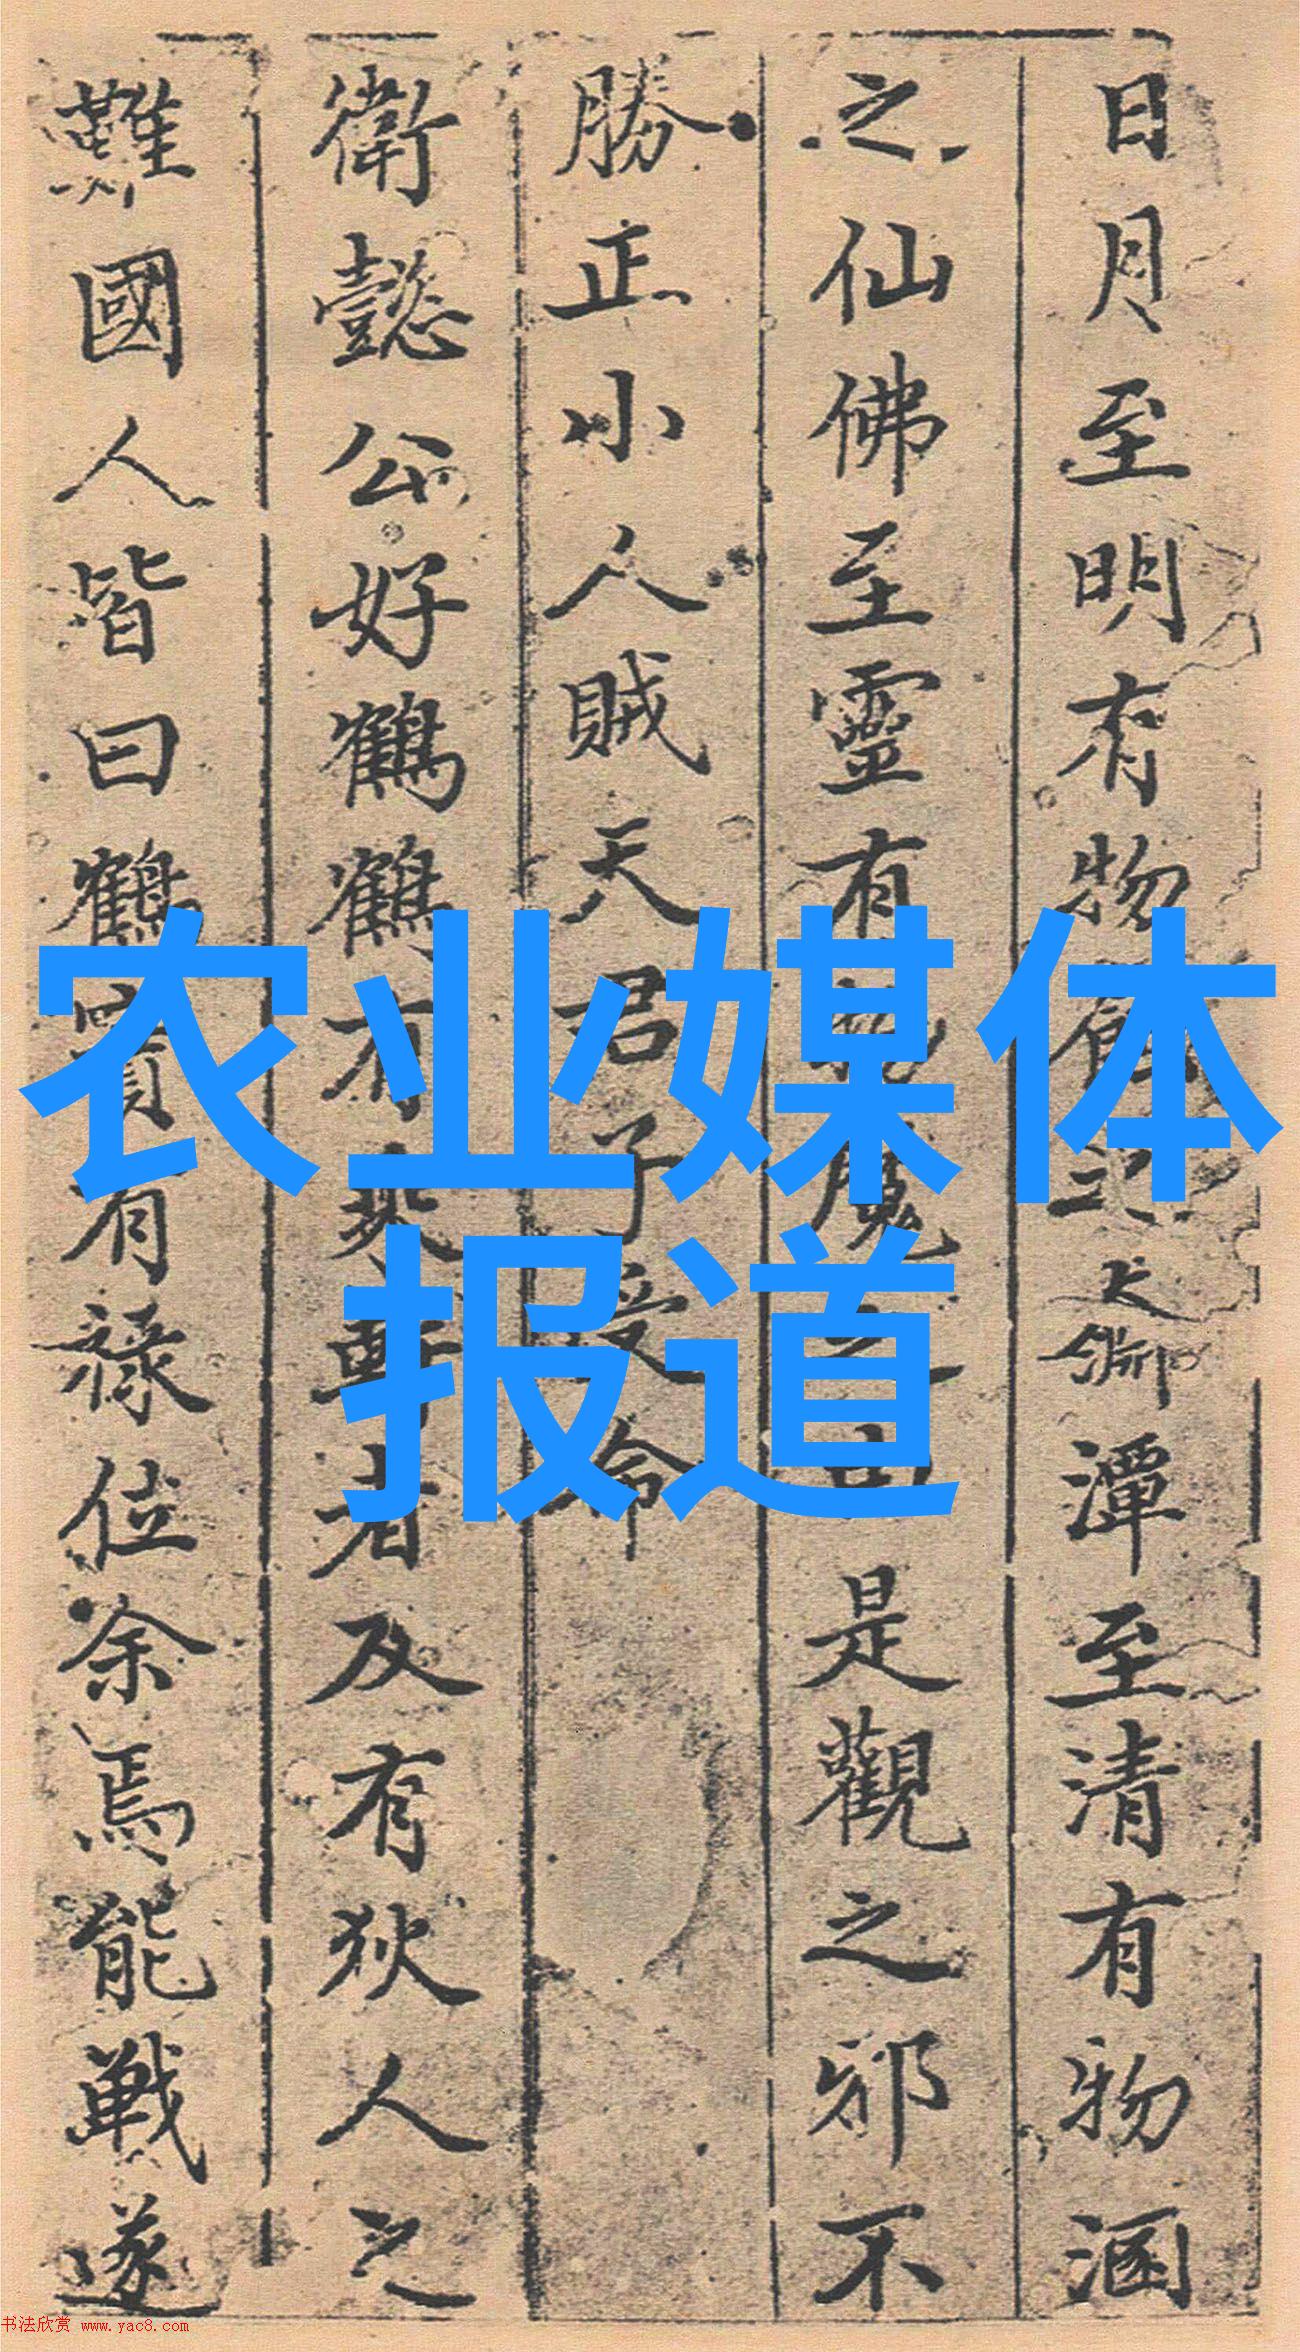 日月至明有物
大淵潭至清有物涵
之仙佛至靈有
魔之
是觀之邪不
勝正小人賊天君子受命
衛懿公好鶴鶴有乘軒者及有狄人之
難國人皆曰鶴實有祿位余焉能戰遂
农业媒体
报道
书法欣赏 www.yac8.com